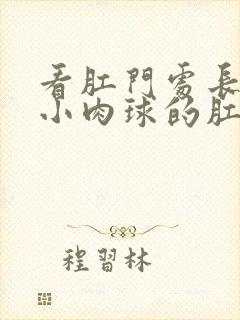 看肛門處長
小肉球的肛
程習林